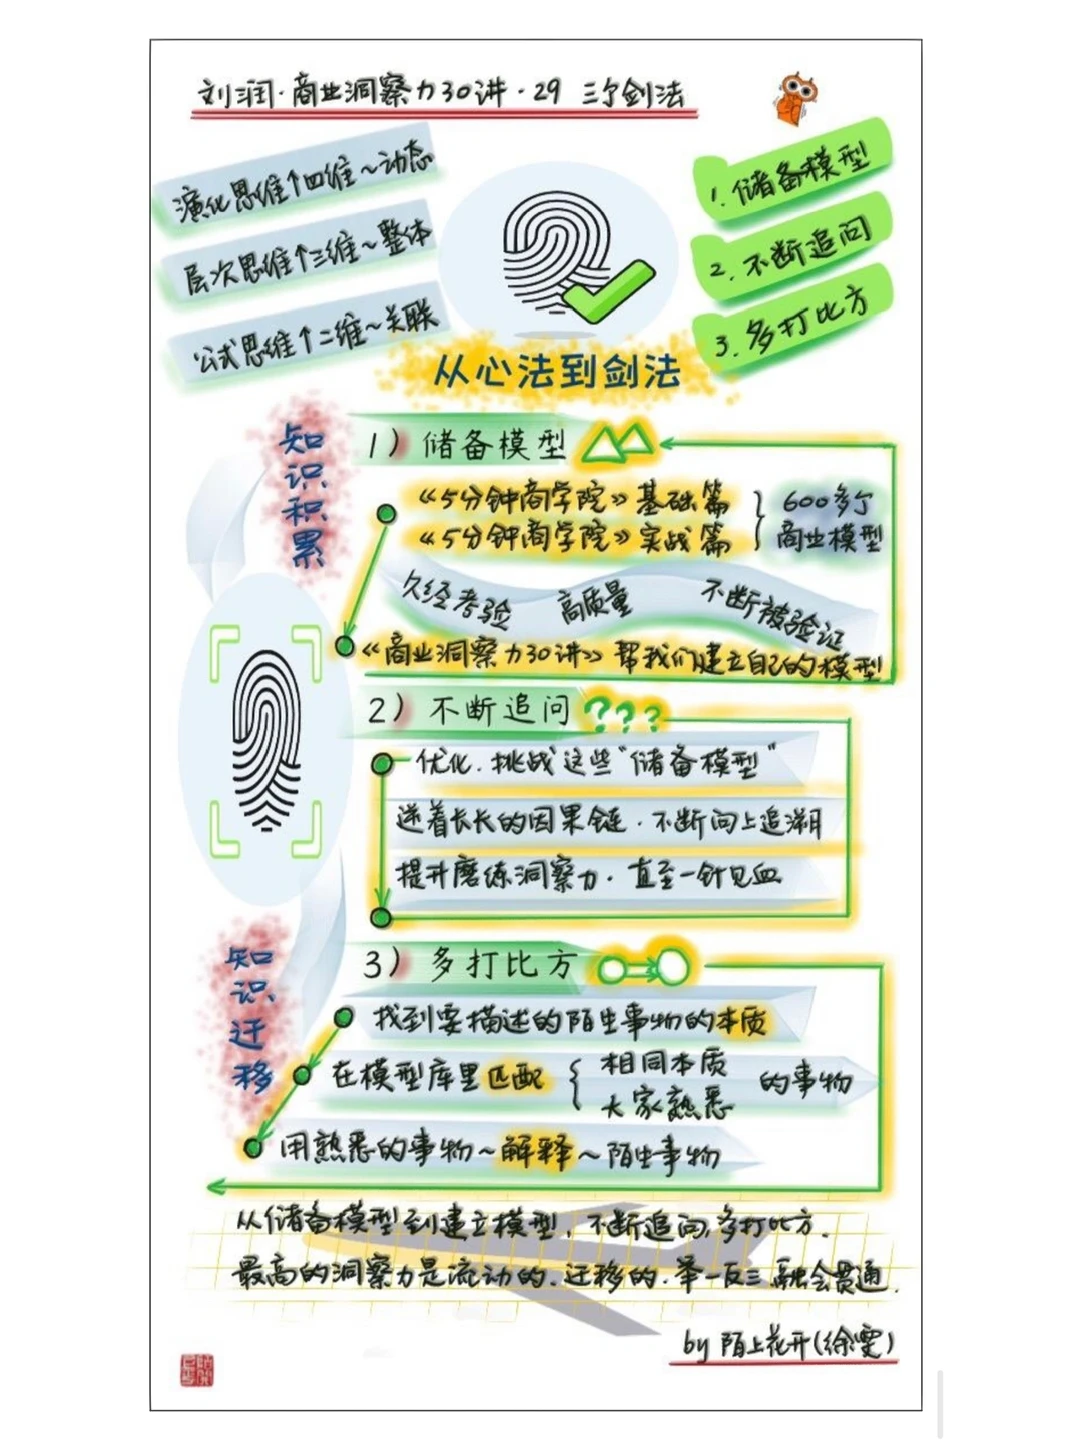 刘润·商业洞察力30讲·29 三个剑法
演化思维↑四维~动态
层次思维↑三维~整体
公式思维↑二维~关联
1.储备模型
2.不断追问
3.多打比方
从心法到剑法
知识积累
1）储备模型
《5分钟商学院》基础篇
《5分钟商学院》实战篇
600多个
商业模型
久经考验 高质量 不断被验证
《商业洞察力30讲》帮我们建立自己的模型
2）不断追问 ???
优化.挑战这些“储备模型”
逆着长长的因果链.不断向上追溯
提升磨练洞察力.直至一针见血
知识迁移
3）多打比方
找到要描述的陌生事物的本质
在模型库里匹配 { 相同本质
大家熟悉
的事物
用熟悉的事物~解释~陌生事物
从储备模型到建立模型.不断追问,多打比方.
最高的洞察力是流动的.迁移的.举一反三.融会贯通.
by 陌上花开(徐雯)